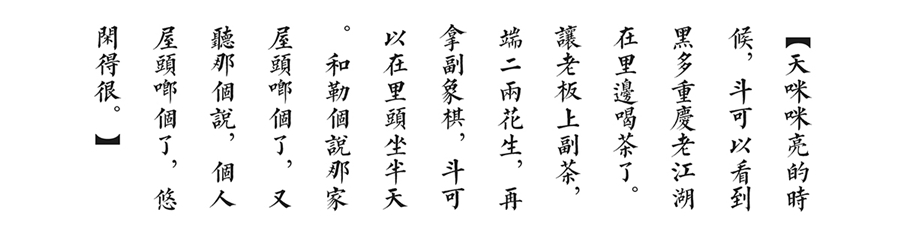 【天咪咪亮的時
候，斗可以看到
黑多重慶老江湖
在里邊喝茶了。
讓老板上副茶，
端二兩花生，再
拿副象棋，斗可
以在里頭坐半天
。和勒個說那家
屋頭啷個了，又
聽那個說，個人
屋頭啷個了，悠
閑得很。】